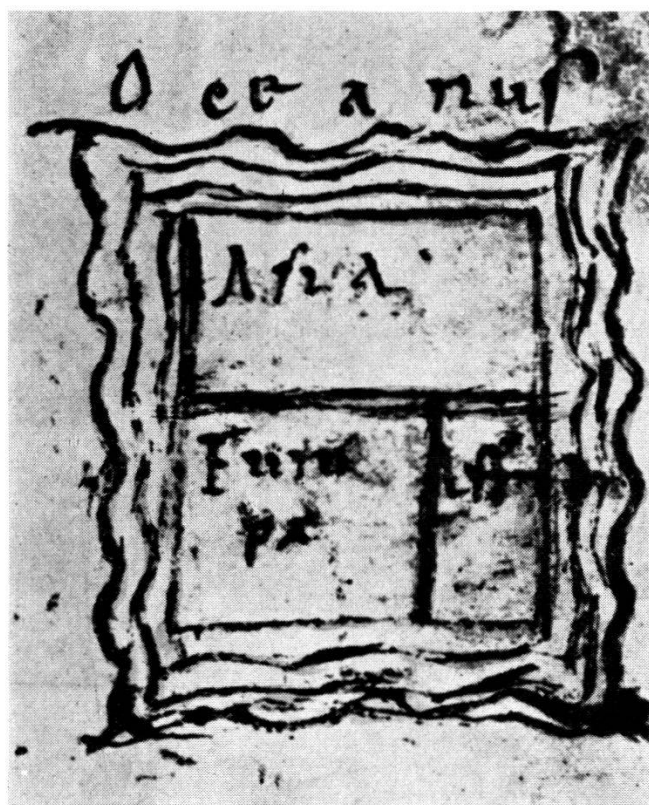 Oceanus
Asia
Euro
pa
Aff